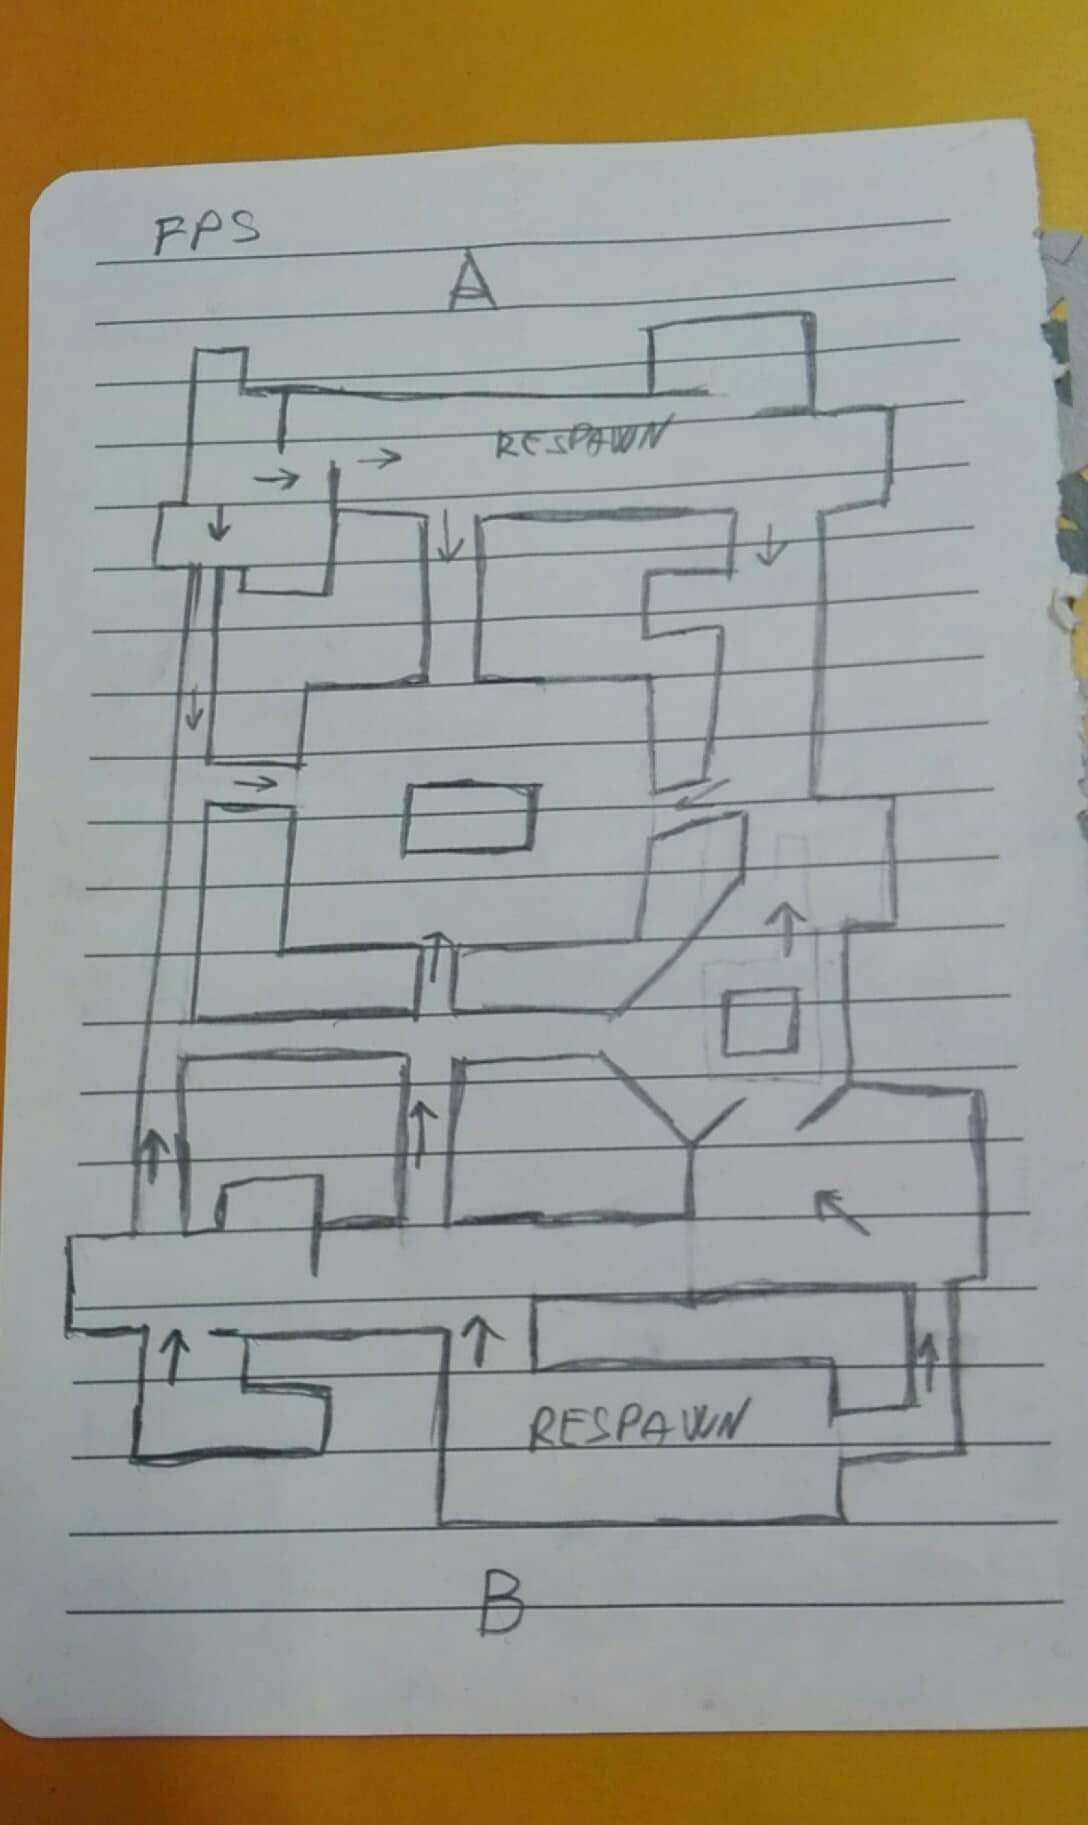 FPS
A
RESPAWN
RESPAWN
B